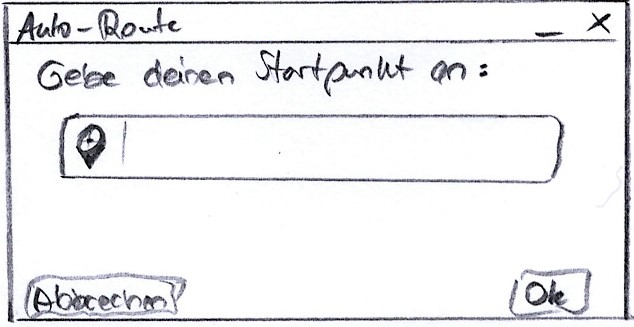 Auto-Route
Gebe deinen Startpunkt an:
Abbrechen
Ok